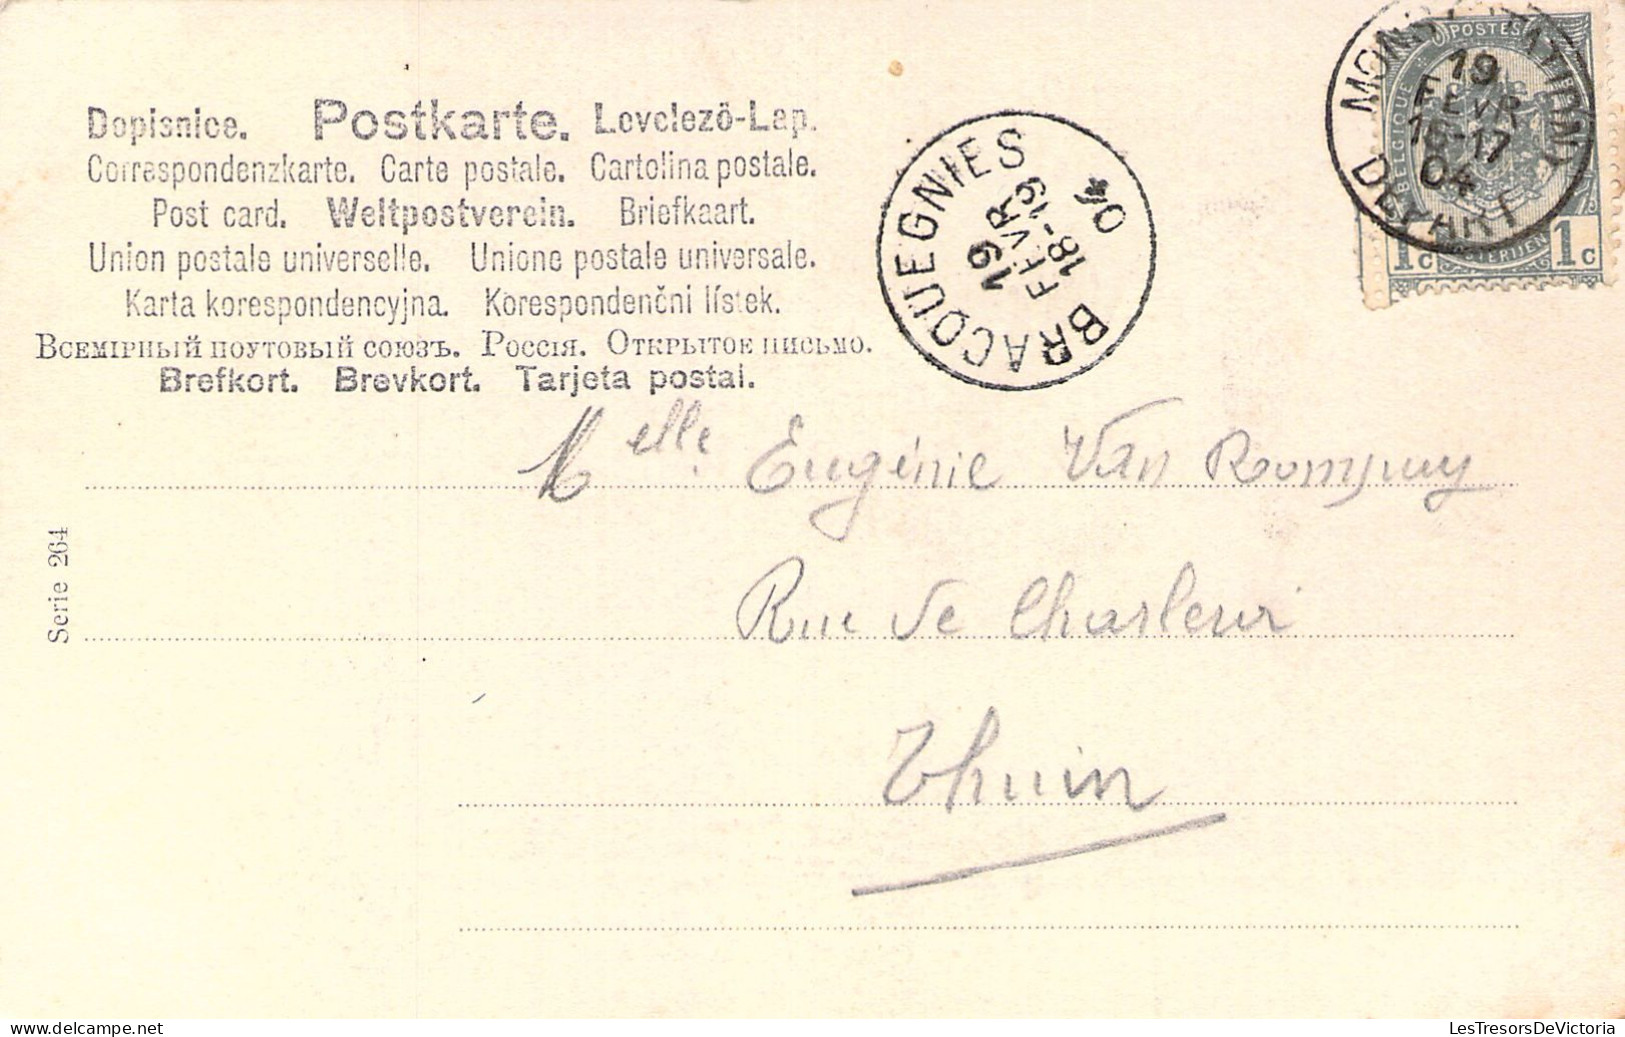 Dopisnice. Postkarte. Levelező-Lap.
Correspondenzkarte. Carte postale. Cartolina postale.
Post card. Weltpostverein. Briefkaart.
Union postale universelle. Unione postale universale.
Karta korespondencyjna. Korespondenční lístek.
Всемірный поутовый союзъ. Россія. Открытое письмо.
Brefkort. Brevkort. Tarjeta postal.
BRACQUEGNIES
19
FEVR
18-19
04
POSTES
BELGIQUE
1c 1c
19
FEVR
16-17
04
DEPART
Melle Eugénie Van Rompuy
Rue de Charleroi
Thuin
Serie 264
delcampe.net
LesTresorsDeVictoria